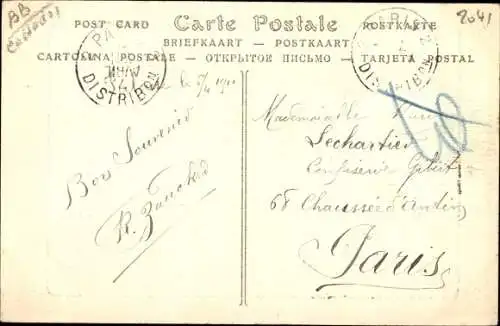 BB
2041
POST CARD Carte Postale POSTKARTE
BRIEFKAART - POSTKAART
CARTOLINA POSTALE - ОТКРЫТОЕ ПИСЬМО - TARJETA POSTAL
PARIS
DISTRIBON
DISTRIBON
le 5/4
Bon Souvenir
R.
Mademoiselle
Lechartier
Confiserie
68 Chaussée d'Antin
Paris